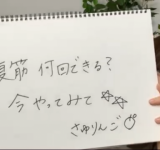 腹筋 何回できる?
今 やってみて ☆☆
さゆりんご